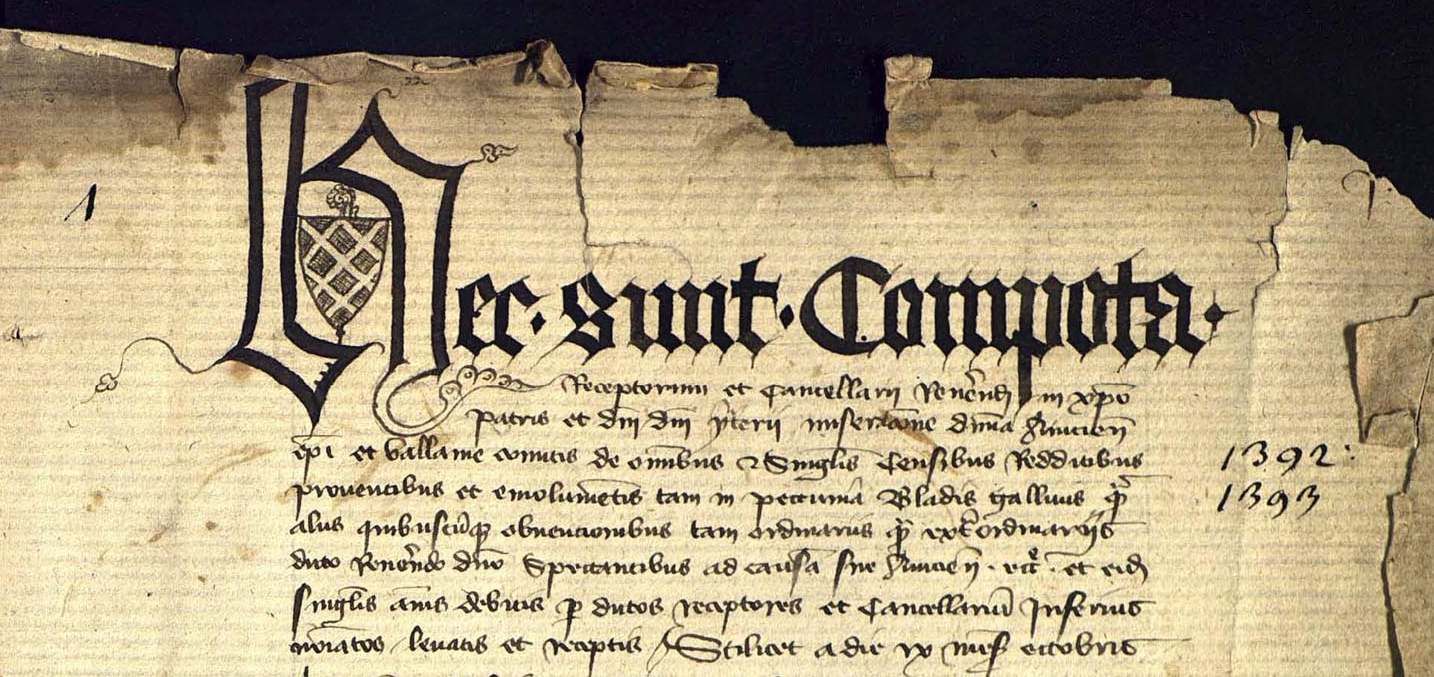 1
Hec · sunt · Compota ·
Receptorum et Cancellarii Reuerendi in xpo
patris et dni dni yterii miseracione diuina Anicien
epi et vallauie comitis de omibus et Singlis Censibus Redditibus
1392
prouentibus et emolumetis tam in peccunia Bladis gallinis qr
1393
aliis quibuscuqz obuencionibus tam ordinariis qr extordinariis
dicto Reuerendo dno Spectantibus ad causa sue Anicien · ecc · et eid
singlis anis debitis p dictos receptores et Cancellariu Inferius
noiatos leuatis et receptis / Scilicet a die ix mes octobris